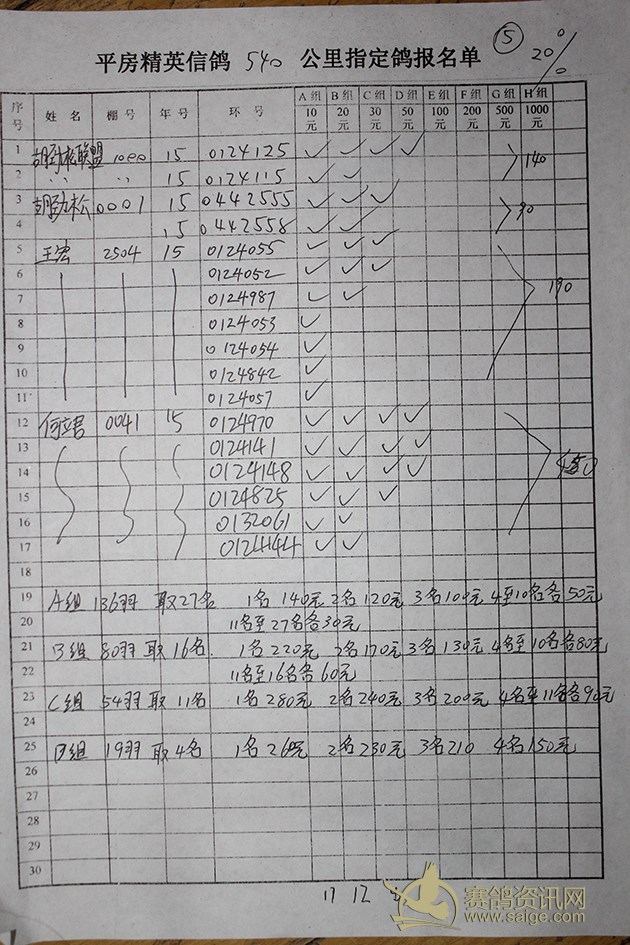 ⑤
20%
平房精英信鸽 540 公里指定鸽报名单
序号 姓名 棚号 年号 环号 A组10元 B组20元 C组30元 D组50元 E组100元 F组200元 G组500元 H组1000元
1 胡劲松联盟 1000 15 0124125 ✓ ✓ ✓ ✓ 140
2 〃 〃 15 0124115 ✓ ✓
3 胡劲松 0001 15 0442555 ✓ ✓ ✓ 90
4 15 0442558 ✓ ✓
5 王宏 2504 15 0124055 ✓ ✓ ✓
6 0124052 ✓ ✓ ✓
7 0124987 ✓ ✓ 190
8 0124053 ✓
9 0124054 ✓
10 0124842 ✓
11 0124057 ✓
12 何立君 0041 15 0124970 ✓ ✓ ✓ ✓
13 0124141 ✓ ✓ ✓ ✓
14 0124148 ✓ ✓ ✓ ✓
15 0124825 ✓ ✓ ✓
16 0132061 ✓ ✓
17 0124144 ✓ ✓
18
19 A组 136羽 取27名 1名140元 2名120元 3名100元 4至10名各50元
20 11名至27名各30元
21 B组 80羽 取16名. 1名220元 2名170元 3名130元 4名至10名各80元
22 11名至16名各60元
23 C组 54羽 取11名 1名280元 2名240元 3名200元 4名至11名各90元
24
25 D组 19羽 取4名 1名260元 2名230元 3名210 4名150元
26
27
28
29
30
17 12
赛鸽资讯网
www.saige.com